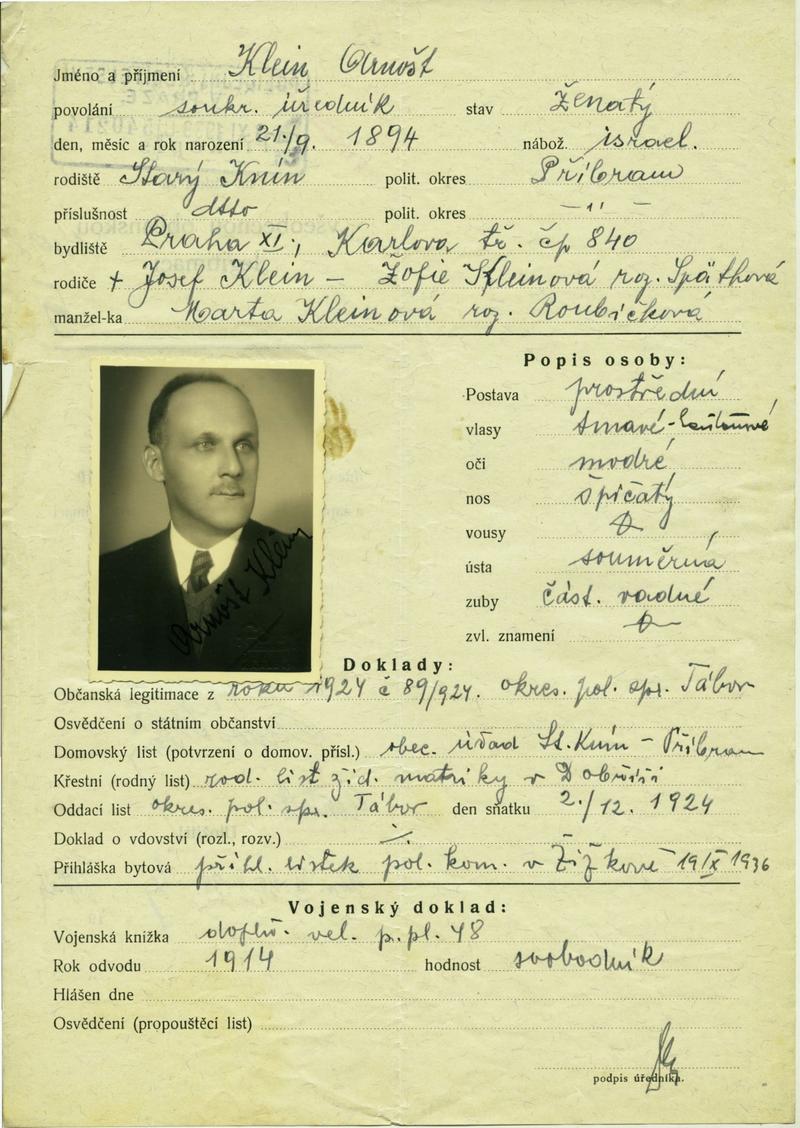 Jméno a příjmení Klein Arnošt
povolání soukr. úředník stav Ženatý
den, měsíc a rok narození 21./9. 1894 nábož. israel.
rodiště Starý Knín polit. okres Příbram
příslušnost dtto polit. okres —"—
bydliště Praha XI., Karlova tř. čp 840
rodiče + Josef Klein — Žofie Kleinová roz. Späthová
manžel-ka Marta Kleinová roz. Roubíčková
Popis osoby:
Postava prostřední
vlasy tmavé-
oči modré
nos špičatý
vousy
ústa souměrná
zuby část. vadné
zvl. znamení
Arnošt Klein
Doklady:
Občanská legitimace z roku 1924 č 89/924. okres. pol. spr. Tábor
Osvědčení o státním občanství
Domovský list (potvrzení o domov. přísl.) obec. úřad St. Knín — Příbram
Křestní (rodný list) rod. list žid. matriky v Dobříši
Oddací list okres. pol. spr. Tábor den sňatku 2./12. 1924
Doklad o vdovství (rozl., rozv.) ·/.
Přihláška bytová přihl. lístek pol. kom. v Žižkově 19/IX 1936
Vojenský doklad:
Vojenská knížka doplň. vel. p. pl. 48
Rok odvodu 1914 hodnost svobodník
Hlášen dne
Osvědčení (propouštěcí list)
podpis úředníka.